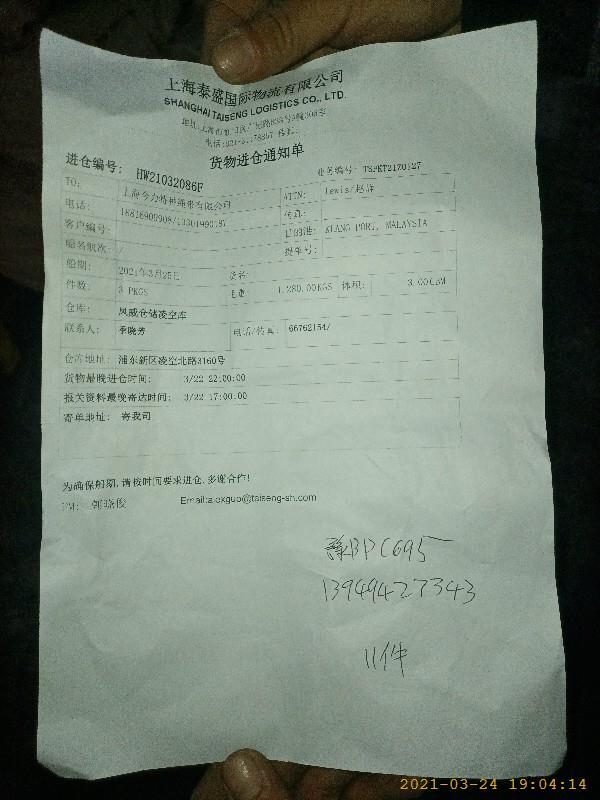 上海泰盛国际物流有限公司
SHANGHAI TAISENG LOGISTICS CO., LTD.
货物进仓通知单
进仓编号: HW21032086F 业务编号: TSPKT2170327
TO: 上海今力特种绳带有限公司 ATTN: Lewis/赵
电话: 传真:
客户编号: 目的港: KLANG PORT, MALAYSIA
船名航次: / 提单号:
船期: 2021年3月25日 货名:
件数: 3 PKGS 毛重: 1,280.00KGS 体积: 3.00CBM
仓库: 凤威仓储凌空库
联系人: 季晓芳 电话/传真: 66762154/
仓库地址: 浦东新区凌空北路3160号
货物最晚进仓时间: 3/22 22:00:00
报关资料最晚寄达时间: 3/22 17:00:00
寄单地址: 寄我司
为确保船期,请按时间要求进仓,多谢合作!
郭晓俊 Email:alexguo@taiseng-sh.com
豫BPC695
13949427343
11件
2021-03-24 19:04:14